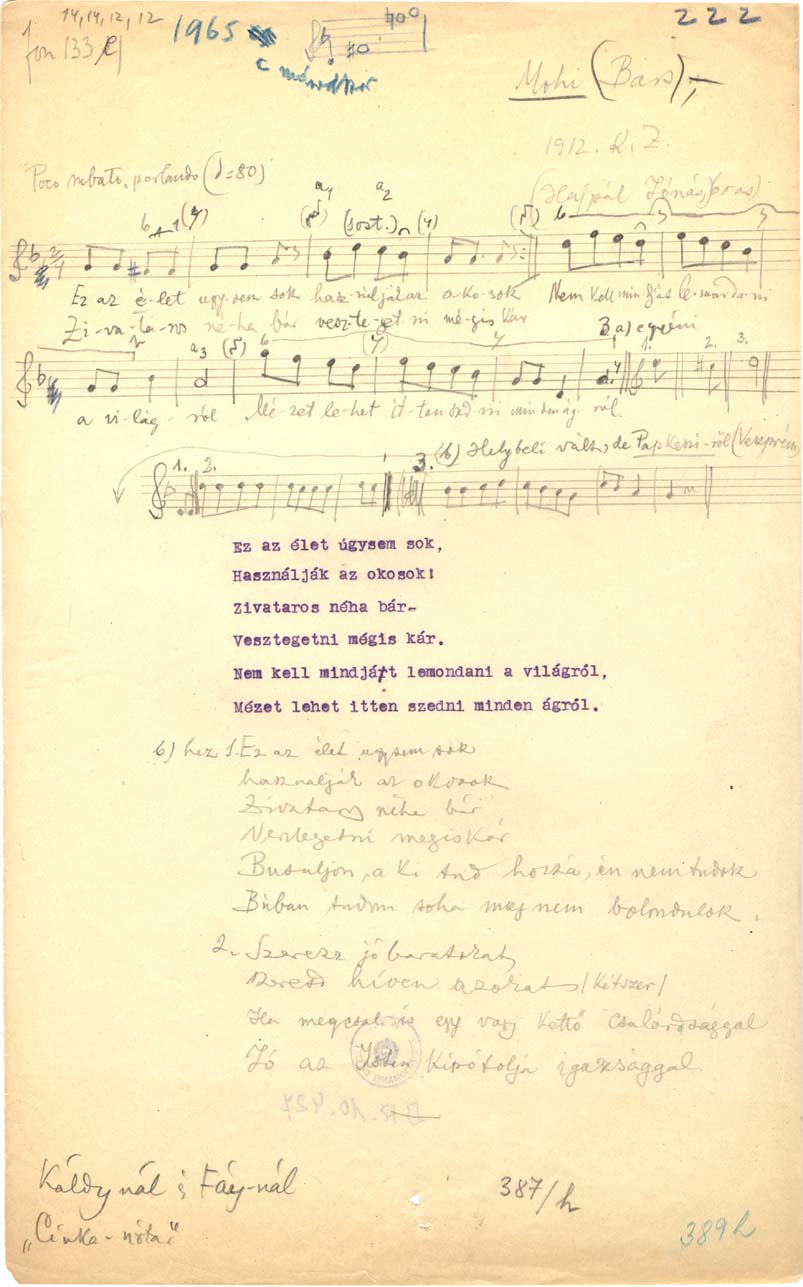 14, 14, 12, 12
fon 133 e)
1965
c
222
Mohi (Bars),
1912. K. Z.
(Hajpál Jónás
Poco rubato, parlando (♩=80)
a1 a2
(sost.)
Ez az é-let ugy-sem sok hasz-náljákaz o-ko-sok Nem kell mindjárt le-monda-ni
Zi-va-ta-ros né-ha bár vesz-te-get-ni mé-gis kár
a3 3 a) egyéni
1. 2. 3.
a vi-lág-ról Mé-zet le-het it-ten szed-ni minden ág-ról.
(b) Helybeli vált., de Papkeszi-ről (Veszprém)
1. 2. 3.
Ez az élet úgysem sok,
Használják az okosok!
Zivataros néha bár-
Vesztegetni mégis kár.
Nem kell mindjárt lemondani a világról,
Mézet lehet itten szedni minden ágról.
b) hez 1. Ez az élet ugysem sok
használják az okosok
Zivataros néha bár
Vesztegetni mégis kár
Busuljon, a ki tud hozzá, én nem tudok
Búban tudom soha meg nem bolondulok.
2. Szerezz jó barátokat,
Szeresd híven azokat /Kétszer/
Ha megcsal is egy vagy kettő csalárdsággal
Jó az Isten Kipótolja igazsággal.
BR. 10.427
Káldynál és Fáy-nál
387/h
„Cinka-nóta"
389h